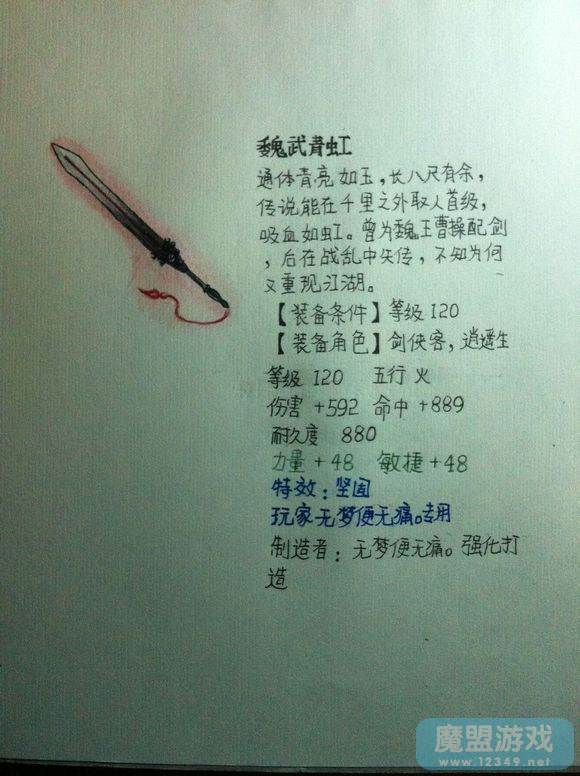 魏武青虹
通体青亮如玉，长八尺有余，
传说能在千里之外取人首级，
吸血如虹。曾为魏王曹操配剑
，后在战乱中失传，不知为何
又重现江湖。
【装备条件】等级120
【装备角色】剑侠客，逍遥生
等级 120 五行 火
伤害 +592 命中 +889
耐久度 880
力量 +48 敏捷 +48
特效：坚固
玩家无梦便无痛。专用
制造者：无梦便无痛。强化打
造
魔盟游戏
www.12349.net